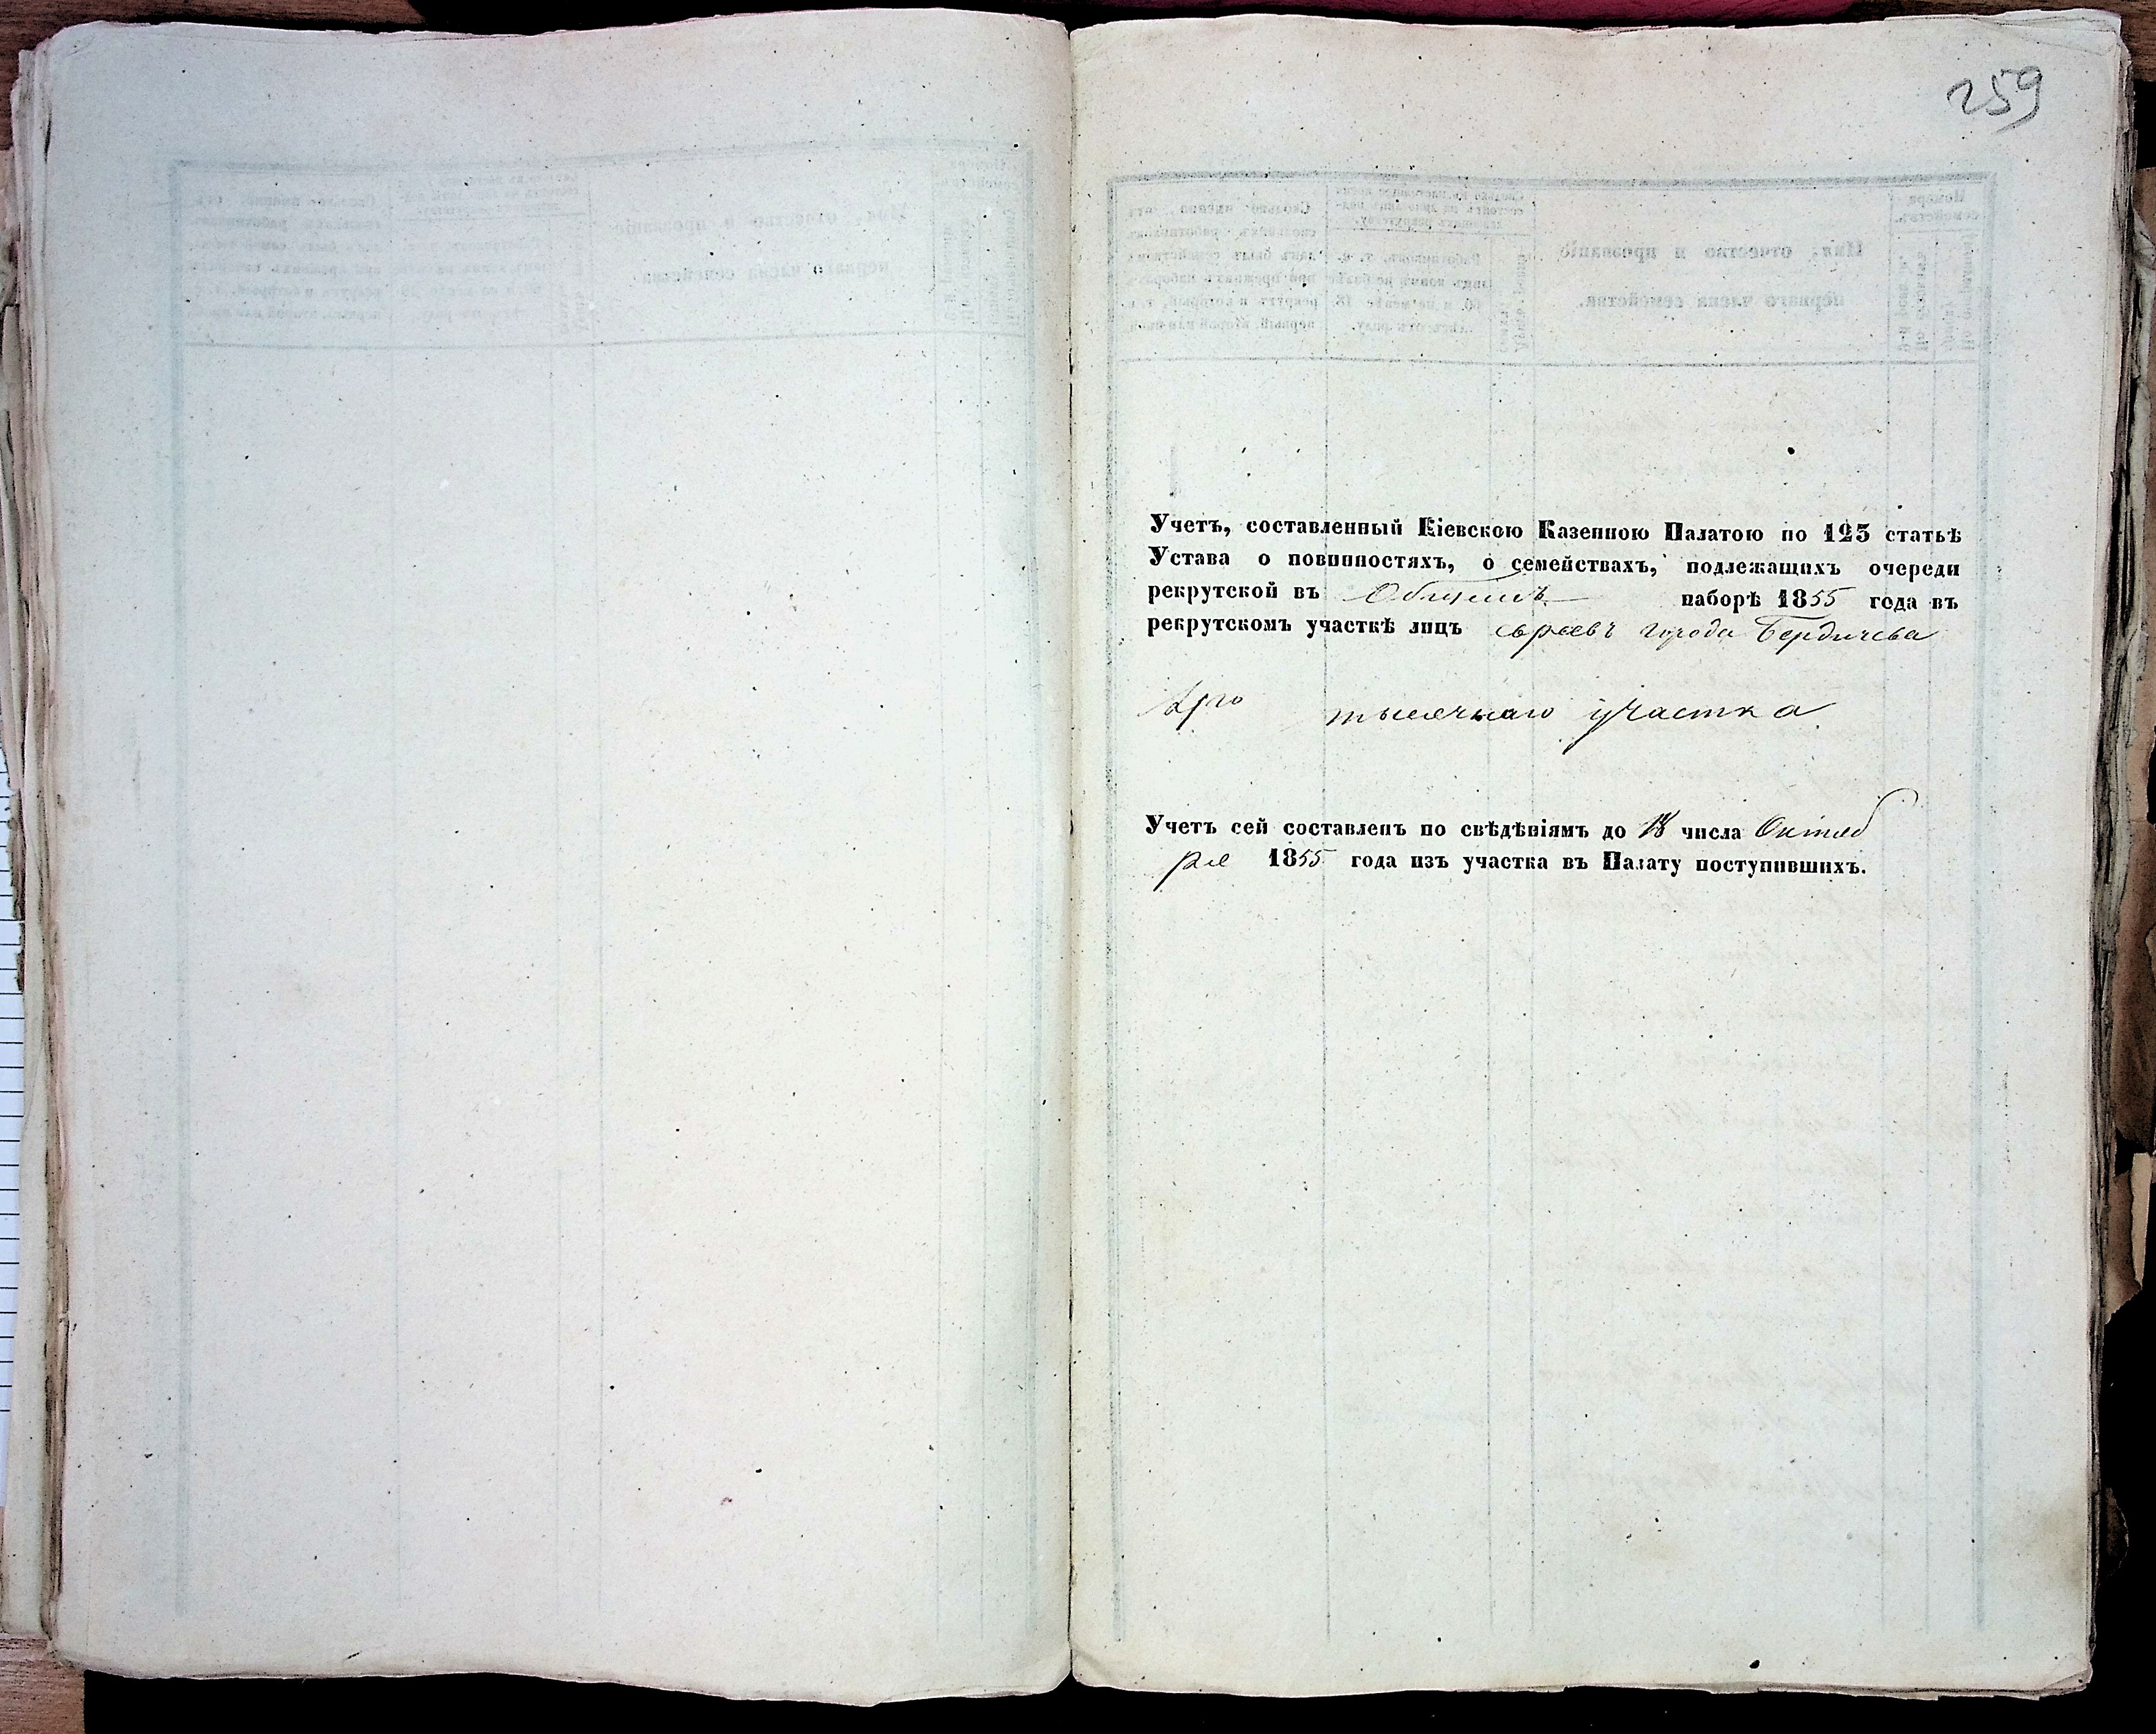 259
Учетъ, составленный Кіевскою Казенною Палатою по 123 статьѣ
Устава о повинностяхъ, о семействахъ, подлежащихъ очереди
рекрутской въ Общемъ наборѣ 1855 года въ
рекрутскомъ участкѣ лицъ евреевъ города Бердичева
тысячнаго участка
Учетъ сей составленъ по свѣдѣніямъ до 18 числа Октяб
ря 1855 года изъ участка въ Палату поступившихъ.